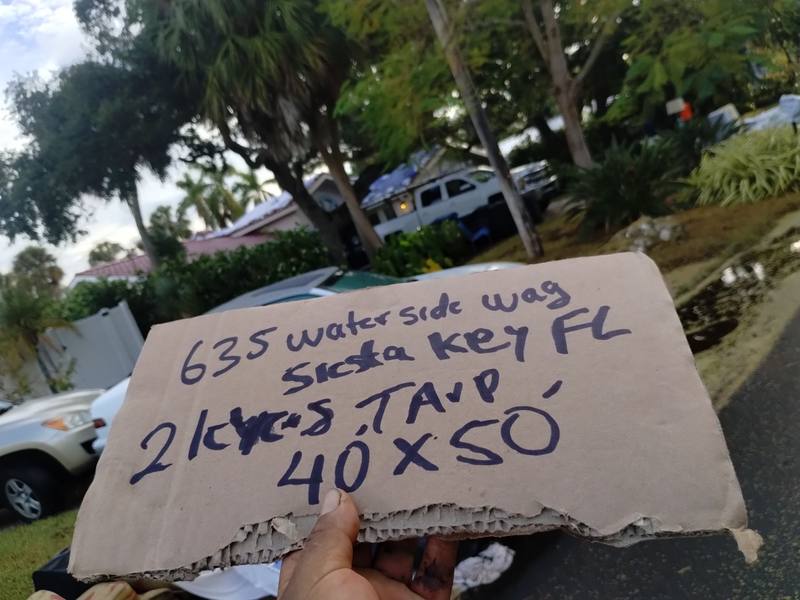 635 waterside way
Siesta Key FL
2 TARP
40' x 50'